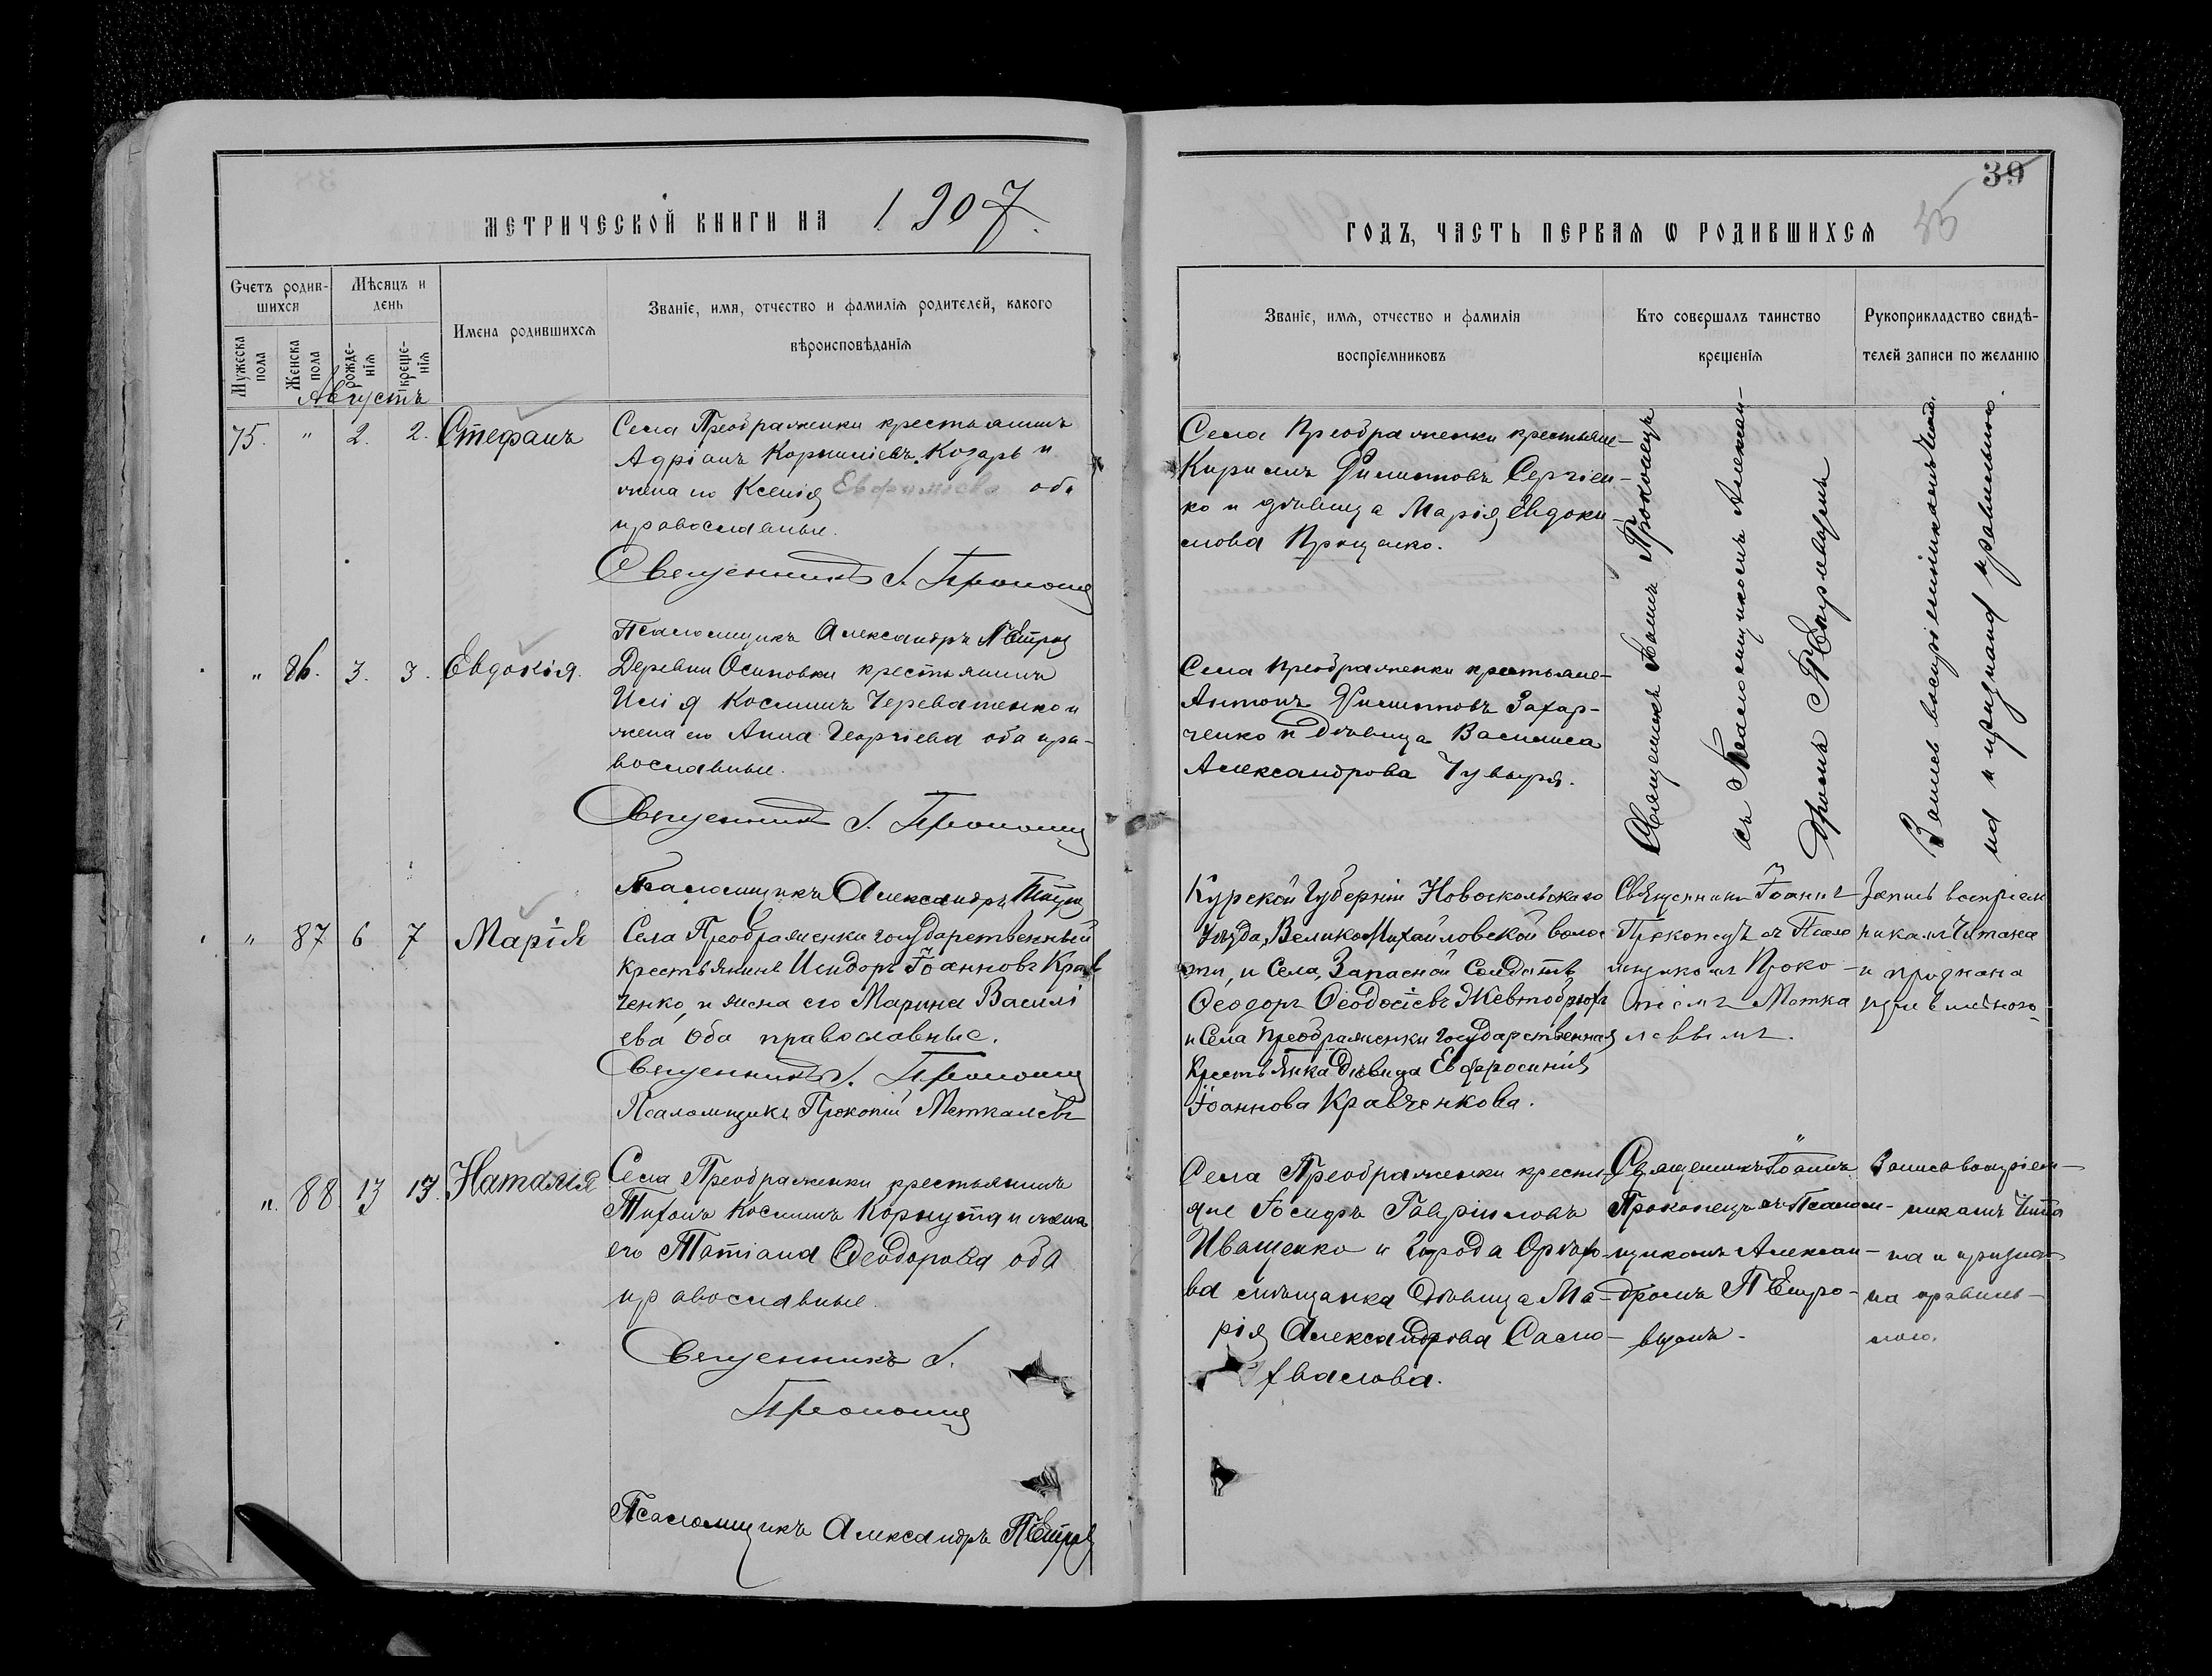 39
МЕТРИЧЕСКОЙ КНИГИ НА 1907.
ГОДЪ, ЧАСТЬ ПЕРВАЯ Ѡ РОДИВШИХСЯ
Счетъ родив-
шихся
Мѣсяцъ и
день
Имена родившихся
Званіе, имя, отчество и фамилія родителей, какого
вѣроисповѣданія
Мужеска
пола
Женска
пола
рожде-
нія
креще-
нія
Званіе, имя, отчество и фамилія
воспріемниковъ
Кто совершалъ таинство
крещенія
Рукоприкладство свидѣ-
телей записи по желанію
Августъ
75. " 2. 2. Стефанъ
Села Преображенки крестьянинъ
Адріанъ Корниліевъ Козарь и
жена его Ксенія Евфиміева оба
православные.
Священникъ І. Прокопецъ
Псаломщикъ Александръ
Села Преображенки крестьяне
Кириллъ Филипповъ Сергіен-
ко и дѣвица Марія Евдоки
мова Проценко.
Священникъ Іоаннъ Прокопецъ
съ Псаломщикомъ Алексан-
дромъ
Запись воспріемникамъ чит.
на и признана правильною.
" 86. 3. 3. Евдокія.
Деревни Осиповки крестьянинъ
Илія Косминъ Череватенко и
жена его Анна Георгіева оба пра-
вославные.
Священникъ І. Прокопецъ
Псаломщикъ Александръ
Села Преображенки крестьяне
Антонъ Филипповъ Захар-
ченко и дѣвица Василиса
Александрова Чувыря.
" 87 6 7 Марія
Села Преображенки государственный
крестьянинъ Исидоръ Іоанновъ Крав
ченко, и жена его Марина Василі
ева Оба православные.
Священникъ І. Прокопецъ
Псаломщикъ Прокопій Меткалевъ
Курской Губерніи Новоскольскаго
Уѣзда, ВеликоМихайловской волос
ти, и Села, Запасной Солдатъ
Ѳеодоръ Ѳеодосіевъ Жевтобрюхъ
и Села Преображенки государственная
Крестьянка Дѣвица Евфросинія
Іоаннова Кравченкова.
Священникъ Іоаннъ
Прокопецъ съ Псало
мщикомъ Проко-
піемъ Метка
левымъ.
Запись воспріем
никамъ Читана
и признана
" 88. 13 13. Наталія
Села Преображенки крестьянинъ
Тихонъ Косминъ Корнута и жена
его Татіана Ѳеодорова оба
православные.
Священникъ І.
Прокопецъ
Псаломщикъ Александръ
Села Преображенки кресть
яне Іосифъ Гавріиловъ
Иващенко и Города Орѣхо-
ва мѣщанка Дѣвица Ма-
рія Александрова Сасно-
хвалова.
Священникъ Іоаннъ
Прокопецъ съ Псалом-
щикомъ Алексан-
дромъ
Запись воспріем-
никамъ Чита
на и призна-
на правиль-
ною.